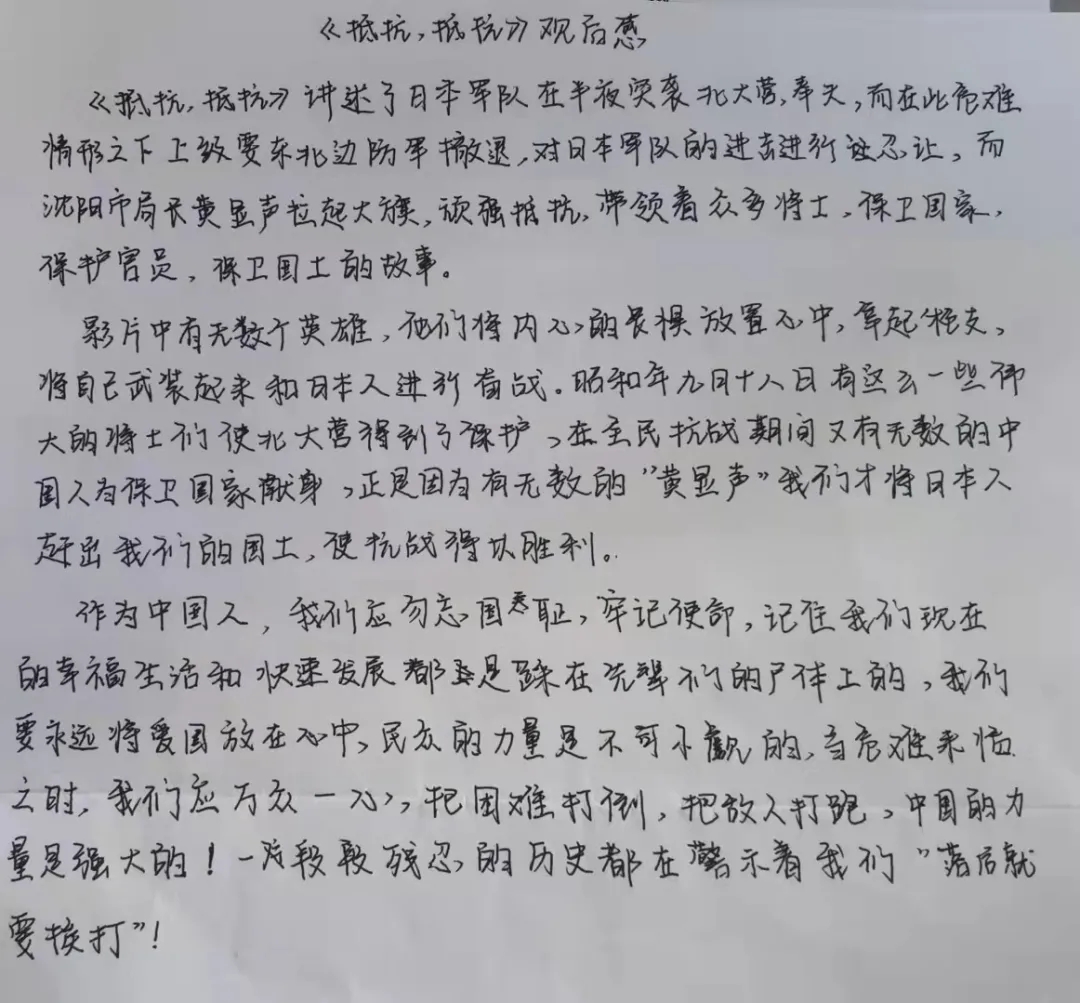 《抵抗,抵抗》观后感
《抵抗,抵抗》讲述了日本军队在半夜突袭北大营,奉天,而在此危难
情形之下上级要东北边防军撤退,对日本军队的进击进行忍让,而
沈阳市局长黄显声拉起大旗,顽强抵抗,带领着众多将士,保卫国家,
保护官员,保卫国土的故事。
影片中有无数个英雄,他们将内心的畏惧放置心中,拿起枪支,
将自己武装起来和日本人进行奋战。昭和年九月十八日有这么一些伟
大的将士们使北大营得到了保护,在全民抗战期间又有无数的中
国人为保卫国家献身,正是因为有无数的"黄显声"我们才将日本人
赶出我们的国土,使抗战得以胜利。
作为中国人,我们应勿忘国耻,牢记使命,记住我们现在
的幸福生活和快速发展都是踩在先辈们的尸体上的,我们
要永远将爱国放在心中,民众的力量是不可小觑的,当危难来临
之时,我们应万众一心,把困难打倒,把敌人打跑,中国的力
量是强大的!一段段残忍的历史都在警示着我们"落后就
要挨打"!